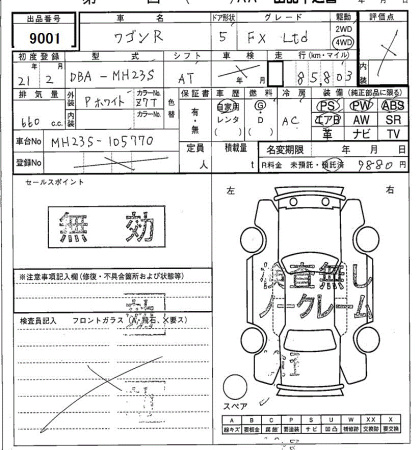 出品番号 車名 ドア形状 グレード 駆動 評価点
9001 ワゴンR 5 FX Ltd 2WD 4WD
初度登録 型式 シフト 車検 走行(km・マイル)
21年 2月 DBA-MH23S AT 年 月 85803
排気量 外装 カラーNo. 色替 保証書 車歴 燃料 冷房 装備(純正部品に限る)
660 c.c. Pホワイト Z7T 有・無 自家用 レンタ G D AC PS PW ABS
内装 カラーNo. エアB AW SR
革 ナビ TV
車台No MH23S-105770 定員 人 積載量 t 名変期限 年 月 日
登録No R料金 未預託・預託済 9880円
セールスポイント
無効
左 右
検査無し
ノークレーム
※注意事項記入欄(修復・不具合箇所および状態等)
検査員記入 フロントガラス(A・飛石、X要ス)
スペア
A B C P S U W X XX
線キズ 要板金 腐蝕 要塗装 サビ 凹凸 補修跡 要交換 交換